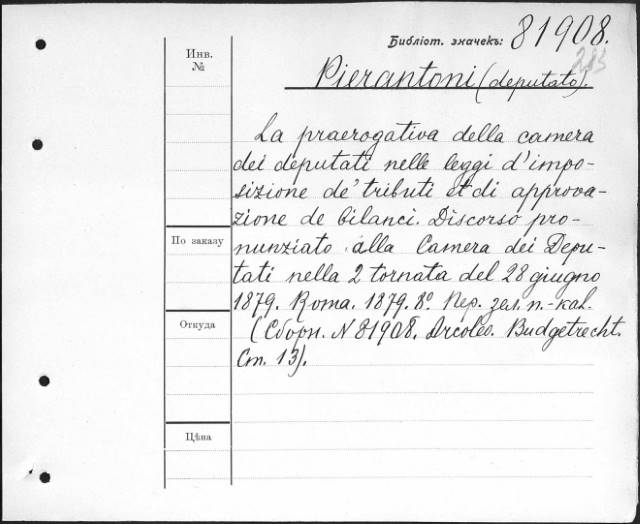 Библіот. значекъ: 81908.
Инв.
№
Pierantoni (deputato).
La praerogativa della camera
dei deputati nelle leggi d'impo-
sizione de' tributi et di approva-
zione de bilanci. Discorso pro-
nunziato alla Camera dei Depu-
По заказу
tati nella 2 tornata del 28 giugno
1879. Roma. 1879. 8º. Пер. зал. п.-каl.
Откуда
(Сборн. N 81908. Arcoleo. Budgetrecht.
Ст. 13).
Цѣна